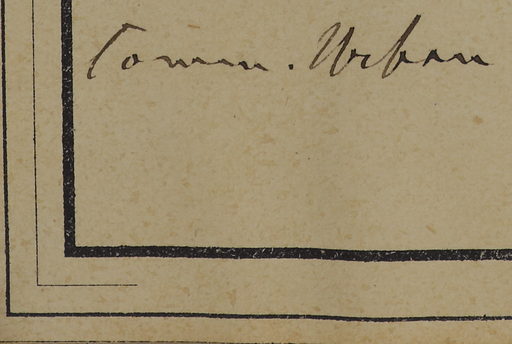 Comm. Urban